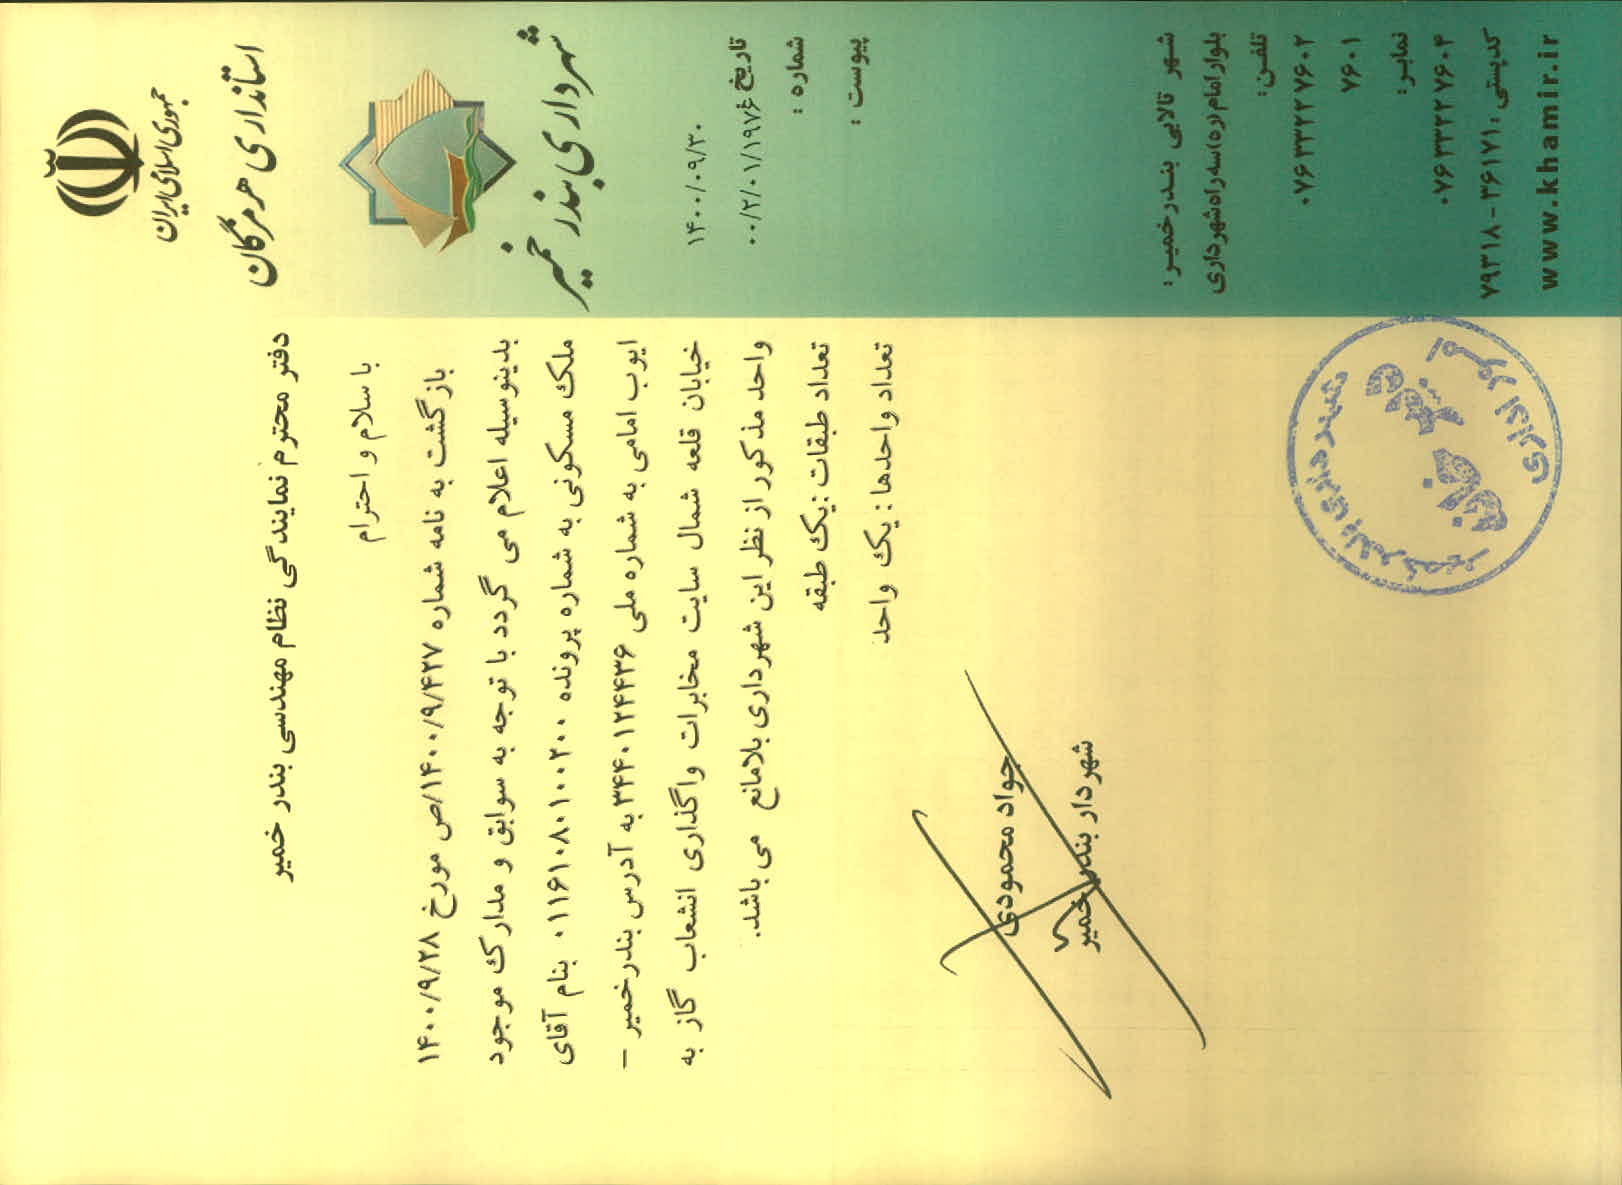 جمهوری اسلامی ایران
استانداری هرمزگان
شهرداری بندر خمیر
۱۴۰۰/۰۹/۳۰
تاریخ
۰۰/۲/۰۱/۱۹۷۶
شماره :
پیوست :
دفتر محترم نمایندگی نظام مهندسی بندر خمیر
با سلام و احترام
بازگشت به نامه شماره ۱۴۰۰/۹/۴۲۷/ص مورخ ۱۴۰۰/۹/۲۸
بدینوسیله اعلام می گردد با توجه به سوابق و مدارک موجود
ملک مسکونی به شماره پرونده ۰۱۱۶۱۰۸۰۱۰۰۲۰۰ بنام آقای
ایوب امامی به شماره ملی ۳۴۴۰۱۲۴۴۳۶ به آدرس بندرخمیر –
خیابان قلعه شمال سایت مخابرات واگذاری انشعاب گاز به
واحد مذکور از نظر این شهرداری بلامانع می باشد.
تعداد طبقات : یک طبقه
تعداد واحدها : یک واحد
جواد محمودی
شهردار بندر خمیر
شهرداری بندر خمیر
امور اداری
شهر تالابی بندرخمیر:
بلوار امام (ره) سه راه شهرداری
تلفن:
۰۷۶۳۳۲۲۷۶۰۲
۷۶۰۱
نمابر:
۰۷۶۳۳۲۲۷۶۰۴
کدپستی: ۳۶۱۷۱-۷۹۳۱۸
www.khamir.ir